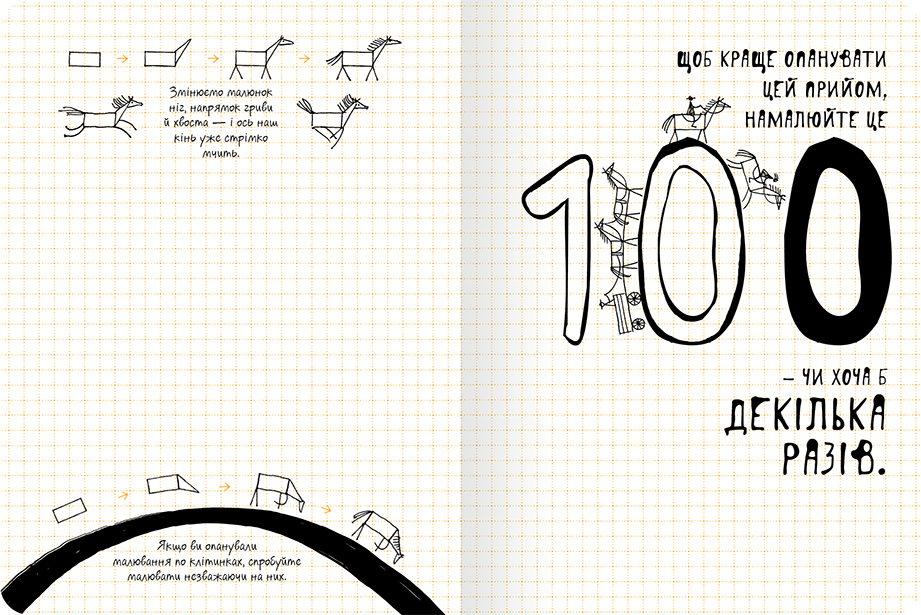 Змінюємо малюнок
ніг, напрямок гриви
й хвоста — і ось наш
кінь уже стрімко
мчить.
Якщо ви опанували
малювання по клітинках, спробуйте
малювати незважаючи на них.
ЩОБ КРАЩЕ ОПАНУВАТИ
ЦЕЙ ПРИЙОМ,
НАМАЛЮЙТЕ ЦЕ
100
– ЧИ ХОЧА Б
ДЕКІЛЬКА
РАЗІВ.